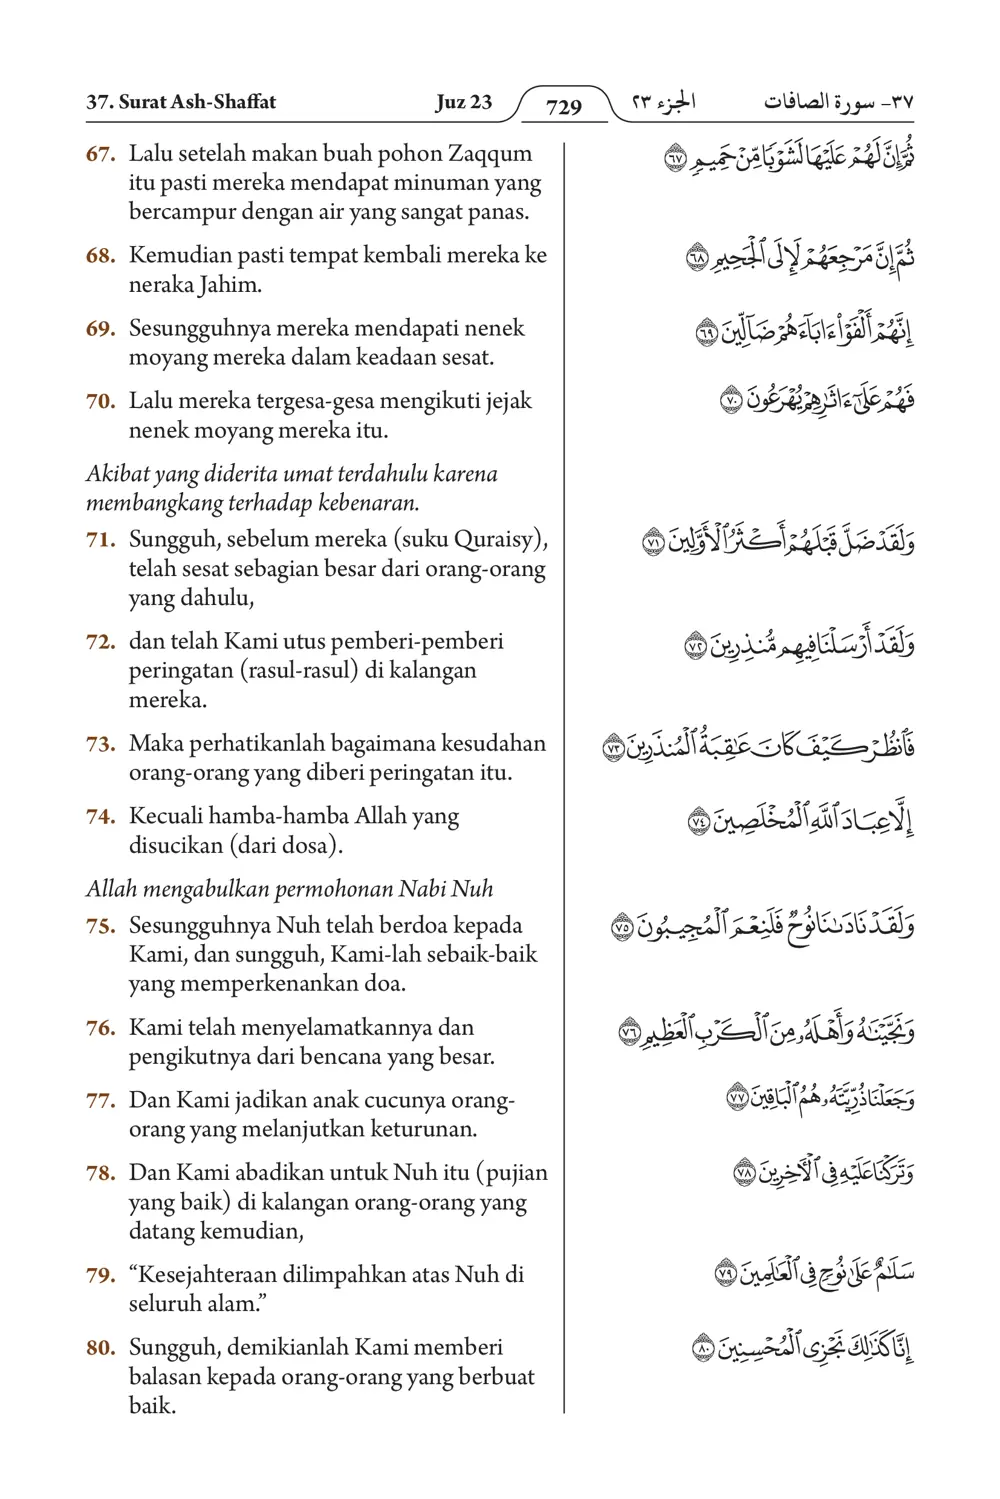 37. Surat Ash-Shaffat Juz 23 729 الجزء ٢٣ ٣٧- سورة الصافات
67. Lalu setelah makan buah pohon Zaqqum
itu pasti mereka mendapat minuman yang
bercampur dengan air yang sangat panas.
68. Kemudian pasti tempat kembali mereka ke
neraka Jahim.
69. Sesungguhnya mereka mendapati nenek
moyang mereka dalam keadaan sesat.
70. Lalu mereka tergesa-gesa mengikuti jejak
nenek moyang mereka itu.
Akibat yang diderita umat terdahulu karena
membangkang terhadap kebenaran.
71. Sungguh, sebelum mereka (suku Quraisy),
telah sesat sebagian besar dari orang-orang
yang dahulu,
72. dan telah Kami utus pemberi-pemberi
peringatan (rasul-rasul) di kalangan
mereka.
73. Maka perhatikanlah bagaimana kesudahan
orang-orang yang diberi peringatan itu.
74. Kecuali hamba-hamba Allah yang
disucikan (dari dosa).
Allah mengabulkan permohonan Nabi Nuh
75. Sesungguhnya Nuh telah berdoa kepada
Kami, dan sungguh, Kami-lah sebaik-baik
yang memperkenankan doa.
76. Kami telah menyelamatkannya dan
pengikutnya dari bencana yang besar.
77. Dan Kami jadikan anak cucunya orang-
orang yang melanjutkan keturunan.
78. Dan Kami abadikan untuk Nuh itu (pujian
yang baik) di kalangan orang-orang yang
datang kemudian,
79. “Kesejahteraan dilimpahkan atas Nuh di
seluruh alam.”
80. Sungguh, demikianlah Kami memberi
balasan kepada orang-orang yang berbuat
baik.
ثُمَّ إِنَّ لَهُمْ عَلَيْهَا لَشَوْبًا مِّنْ حَمِيمٍ ٦٧
ثُمَّ إِنَّ مَرْجِعَهُمْ لَإِلَى ٱلْجَحِيمِ ٦٨
إِنَّهُمْ أَلْفَوْا۟ ءَابَآءَهُمْ ضَآلِّينَ ٦٩
فَهُمْ عَلَىٰٓ ءَاثَٰرِهِمْ يُهْرَعُونَ ٧٠
وَلَقَدْ ضَلَّ قَبْلَهُمْ أَكْثَرُ ٱلْأَوَّلِينَ ٧١
وَلَقَدْ أَرْسَلْنَا فِيهِم مُّنذِرِينَ ٧٢
فَٱنظُرْ كَيْفَ كَانَ عَٰقِبَةُ ٱلْمُنذَرِينَ ٧٣
إِلَّا عِبَادَ ٱللَّهِ ٱلْمُخْلَصِينَ ٧٤
وَلَقَدْ نَادَىٰنَا نُوحٌ فَلَنِعْمَ ٱلْمُجِيبُونَ ٧٥
وَنَجَّيْنَٰهُ وَأَهْلَهُۥ مِنَ ٱلْكَرْبِ ٱلْعَظِيمِ ٧٦
وَجَعَلْنَا ذُرِّيَّتَهُۥ هُمُ ٱلْبَاقِينَ ٧٧
وَتَرَكْنَا عَلَيْهِ فِى ٱلْءَاخِرِينَ ٧٨
سَلَٰمٌ عَلَىٰ نُوحٍ فِى ٱلْعَٰلَمِينَ ٧٩
إِنَّا كَذَٰلِكَ نَجْزِى ٱلْمُحْسِنِينَ ٨٠